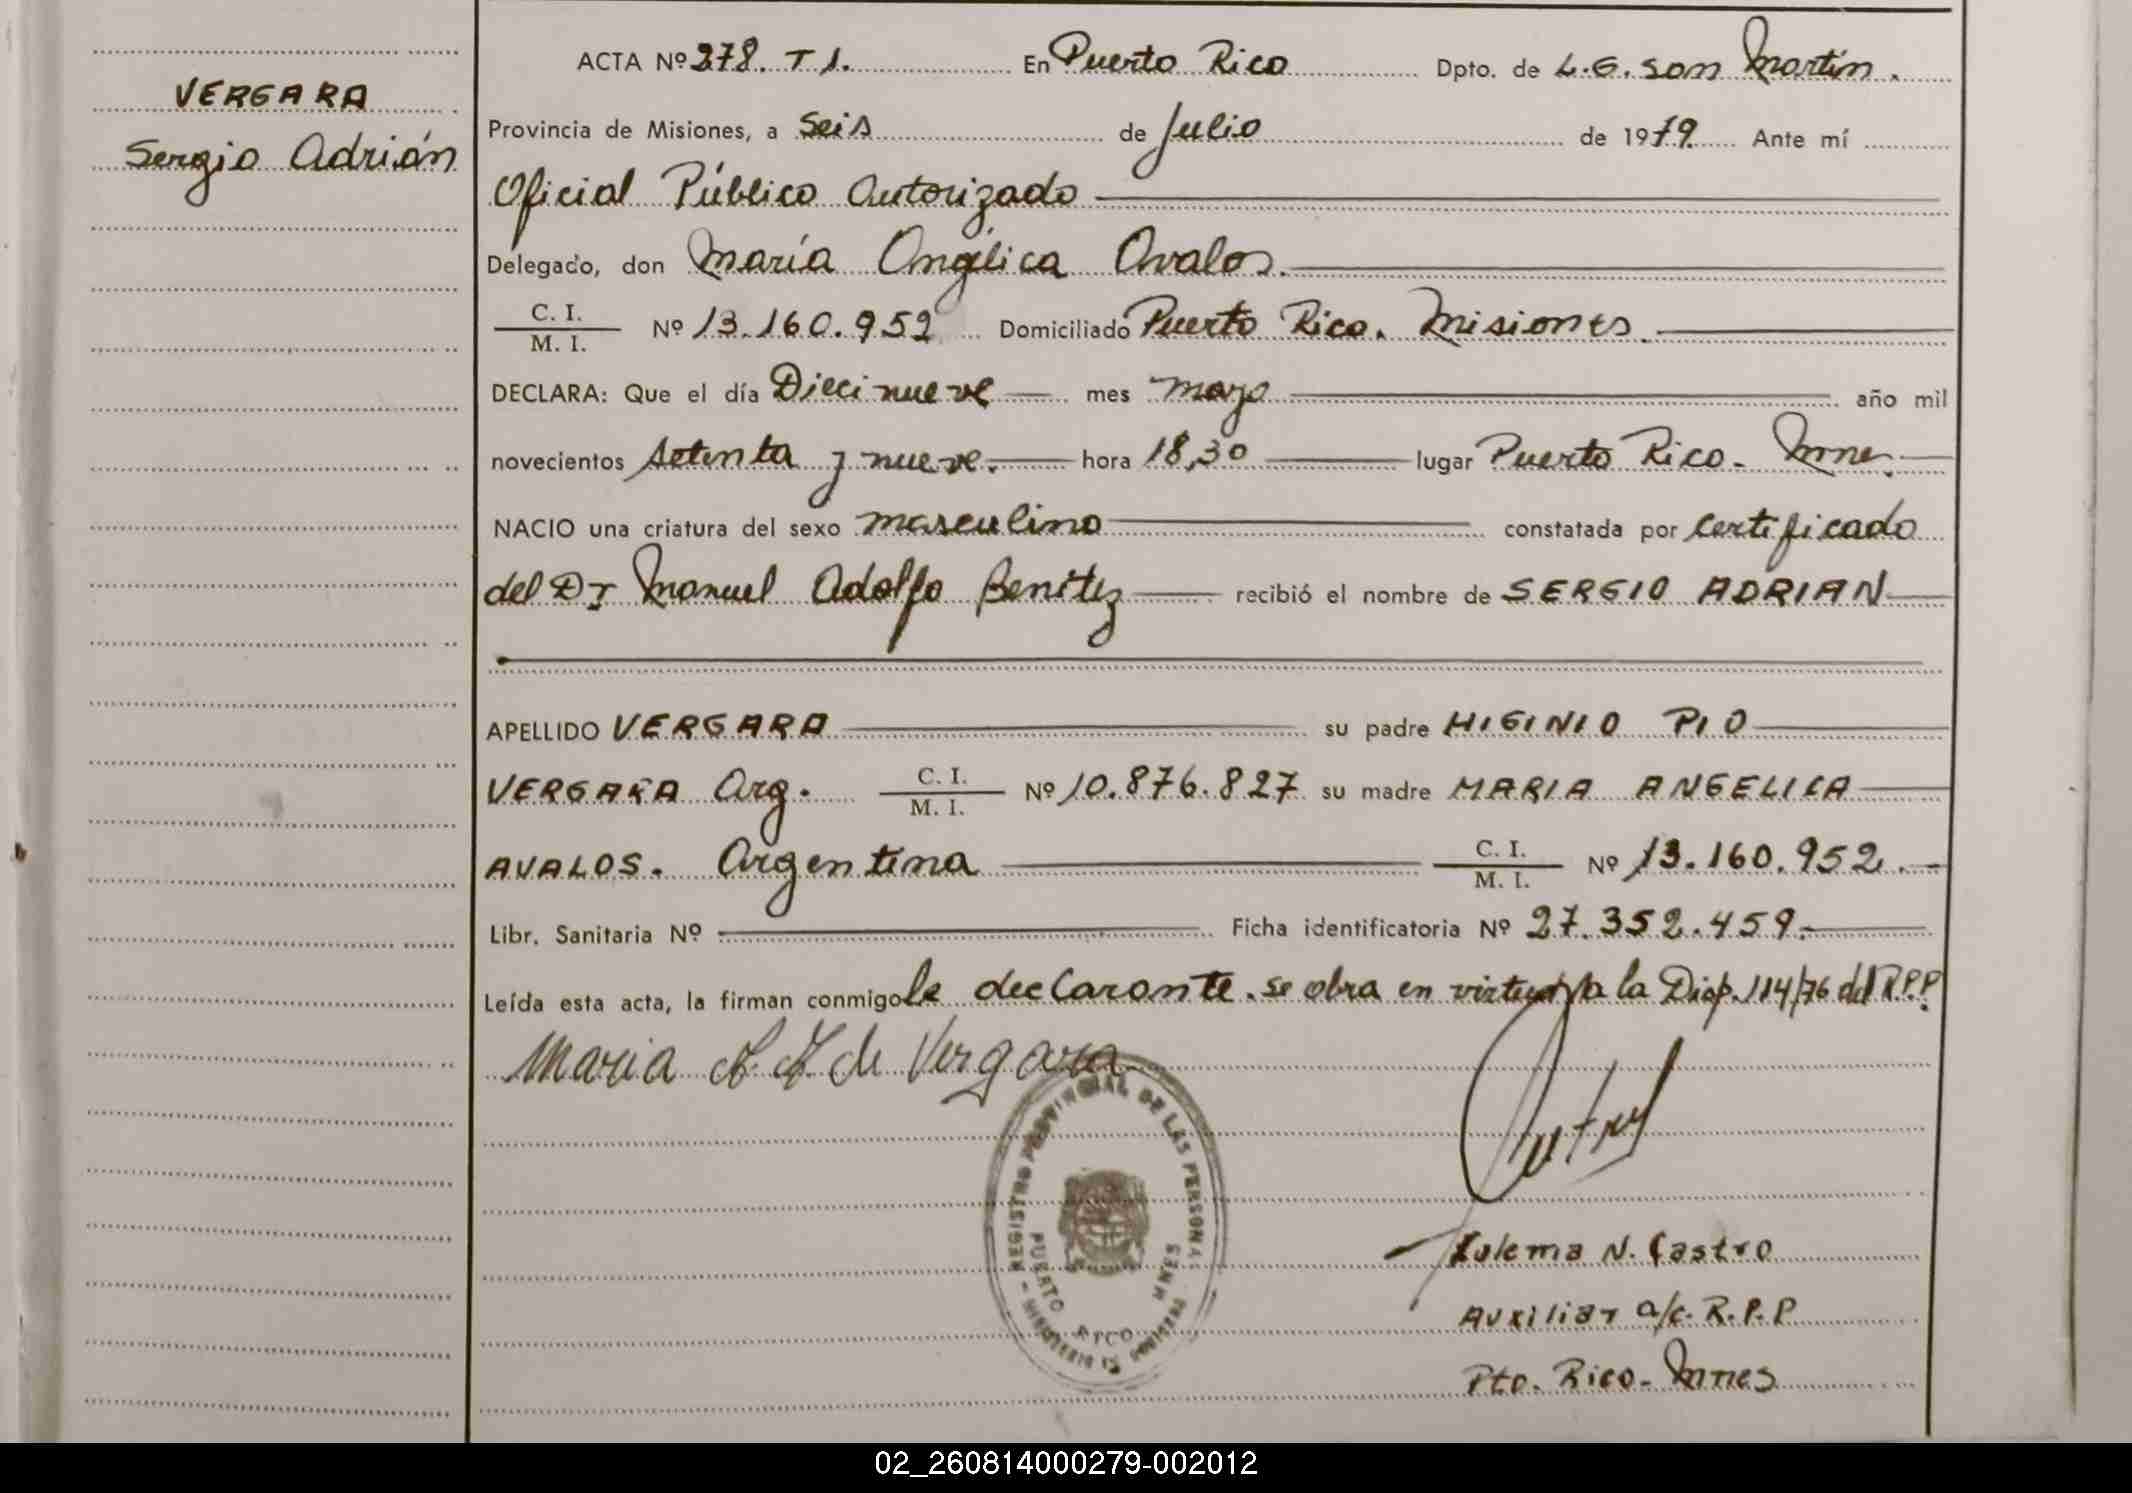 VERGARA
Sergio Adrián
ACTA Nº 278. T I. En Puerto Rico Dpto. de L.G. San Martín.
Provincia de Misiones, a Seis de Julio de 1979. Ante mí
Oficial Público Autorizado
Delegado, don María Angélica Avalos.
C. I.
M. I. Nº 13.160.952 Domiciliado Puerto Rico. Misiones.
DECLARA: Que el día Diecinueve mes mayo año mil
novecientos setenta y nueve. hora 18,30 lugar Puerto Rico - Mnes.
NACIO una criatura del sexo masculino constatada por certificado
del Dr Manuel Adolfo Benítez recibió el nombre de SERGIO ADRIAN
APELLIDO VERGARA su padre HIGINIO PIO
VERGARA Arg. C. I.
M. I. Nº 10.876.827 su madre MARIA ANGELICA
AVALOS. Argentina C. I.
M. I. Nº 13.160.952.
Libr. Sanitaria Nº Ficha identificatoria Nº 27.352.459.
Leída esta acta, la firman conmigo la declarante. se obra en virtud a la Disp. 114/76 del R.P.P.
Maria A. A. de Vergara
REGISTRO PROVINCIAL DE LAS PERSONAS
PUERTO RICO MNES
MINISTERIO DE GOBIERNO
Zulema N. Castro
Auxiliar a/c. R.P.P
Pto. Rico - Mnes
02_260814000279-002012